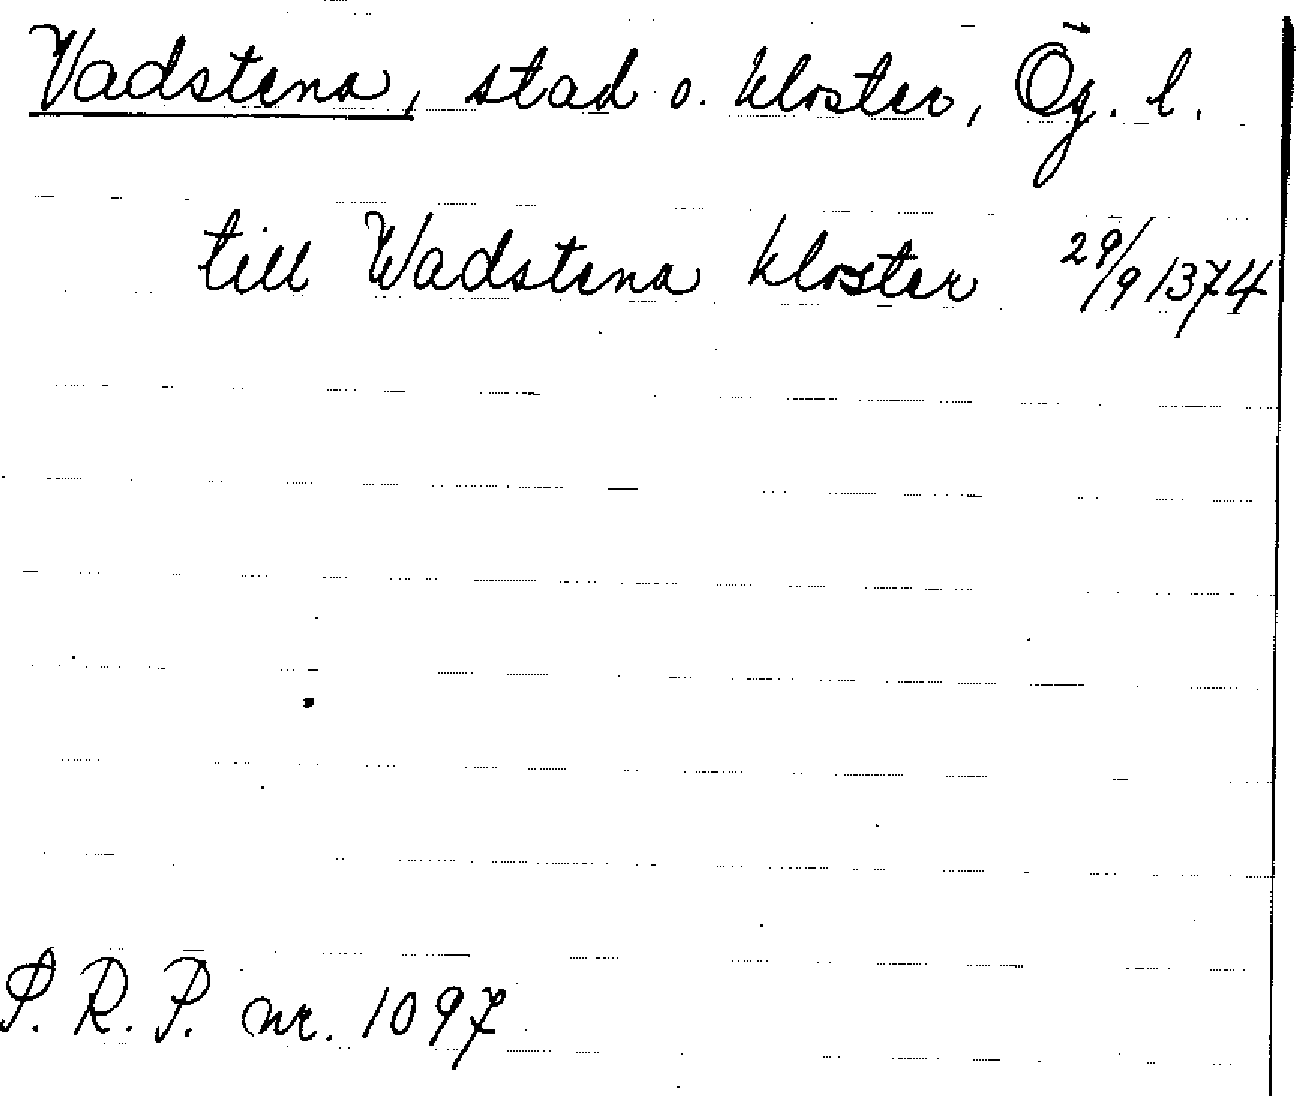 Vadstena, stad o. kloster, Ög. l.
till Wadstena kloster 29/9 1374
S. R. P. nr. 1097